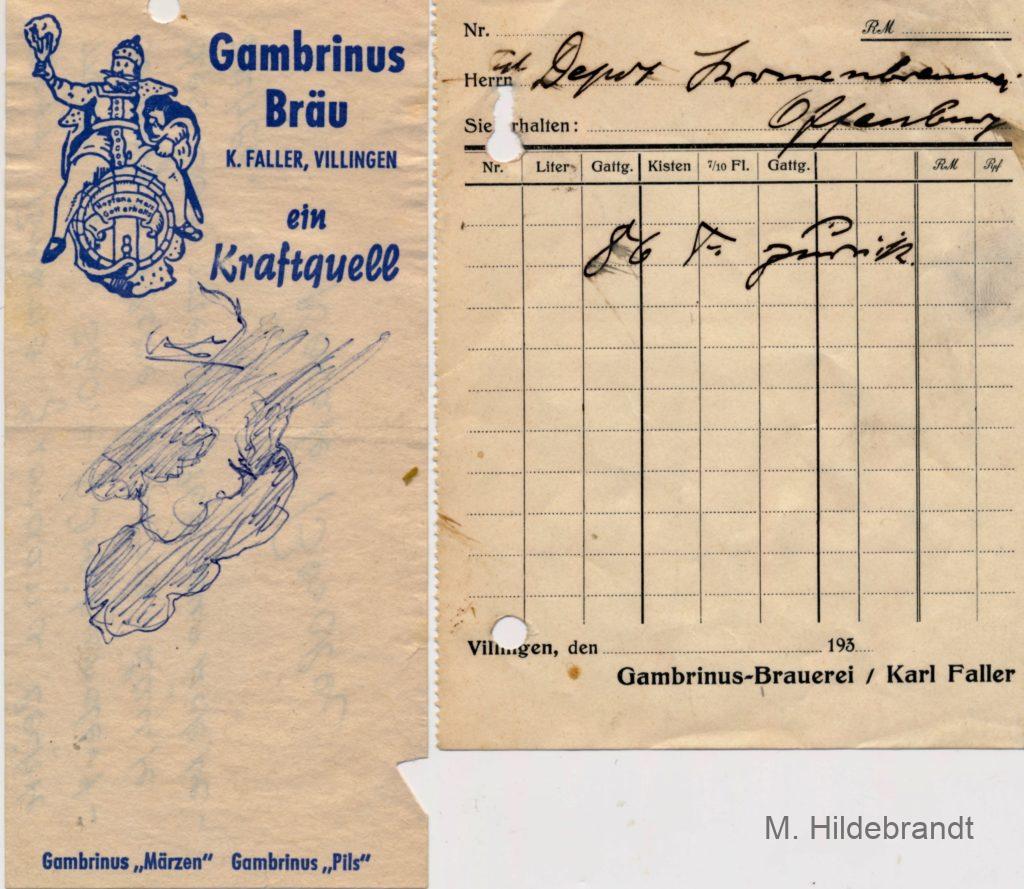 Gambrinus
Bräu
K. FALLER, VILLINGEN
ein
Kraftquell
Hopfen u. Malz
Gott erhalts
Gambrinus „Märzen" Gambrinus „Pils"
Nr.
RM
Herrn Depot Kronenbrauerei
Offenburg
Sie erhalten:
Nr. Liter Gattg. Kisten 7/10 Fl. Gattg. RM Rpf
86 F. zurück.
Villingen, den 193
Gambrinus-Brauerei / Karl Faller
M. Hildebrandt